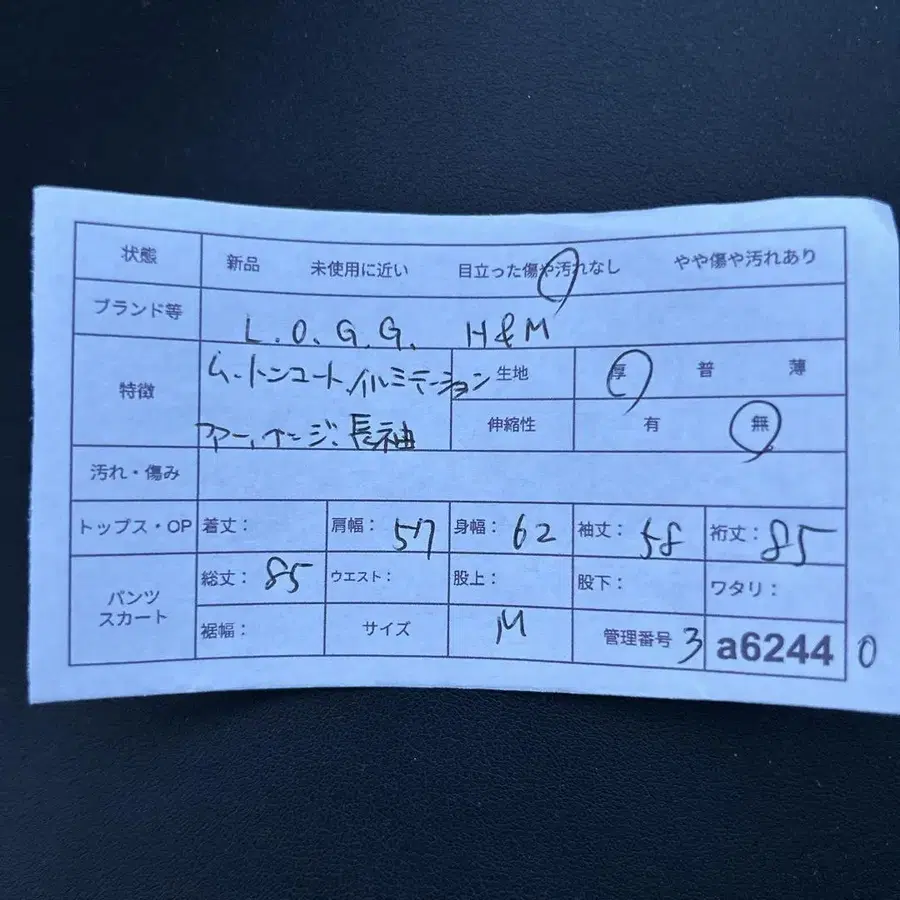 状態 新品 未使用に近い 目立った傷や汚れなし やや傷や汚れあり
ブランド等 L.O.G.G. H&M
特徴 ムートンコート、イルミテーション 生地 厚 普 薄
ファー、 長袖 伸縮性 有 無
汚れ・傷み
トップス・OP 着丈: 肩幅: 517 身幅: 62 袖丈: 58 裄丈: 85
パンツ スカート 総丈: 85 ウエスト: 股上: 股下: ワタリ:
裾幅: サイズ M 管理番号 3 a6244 0